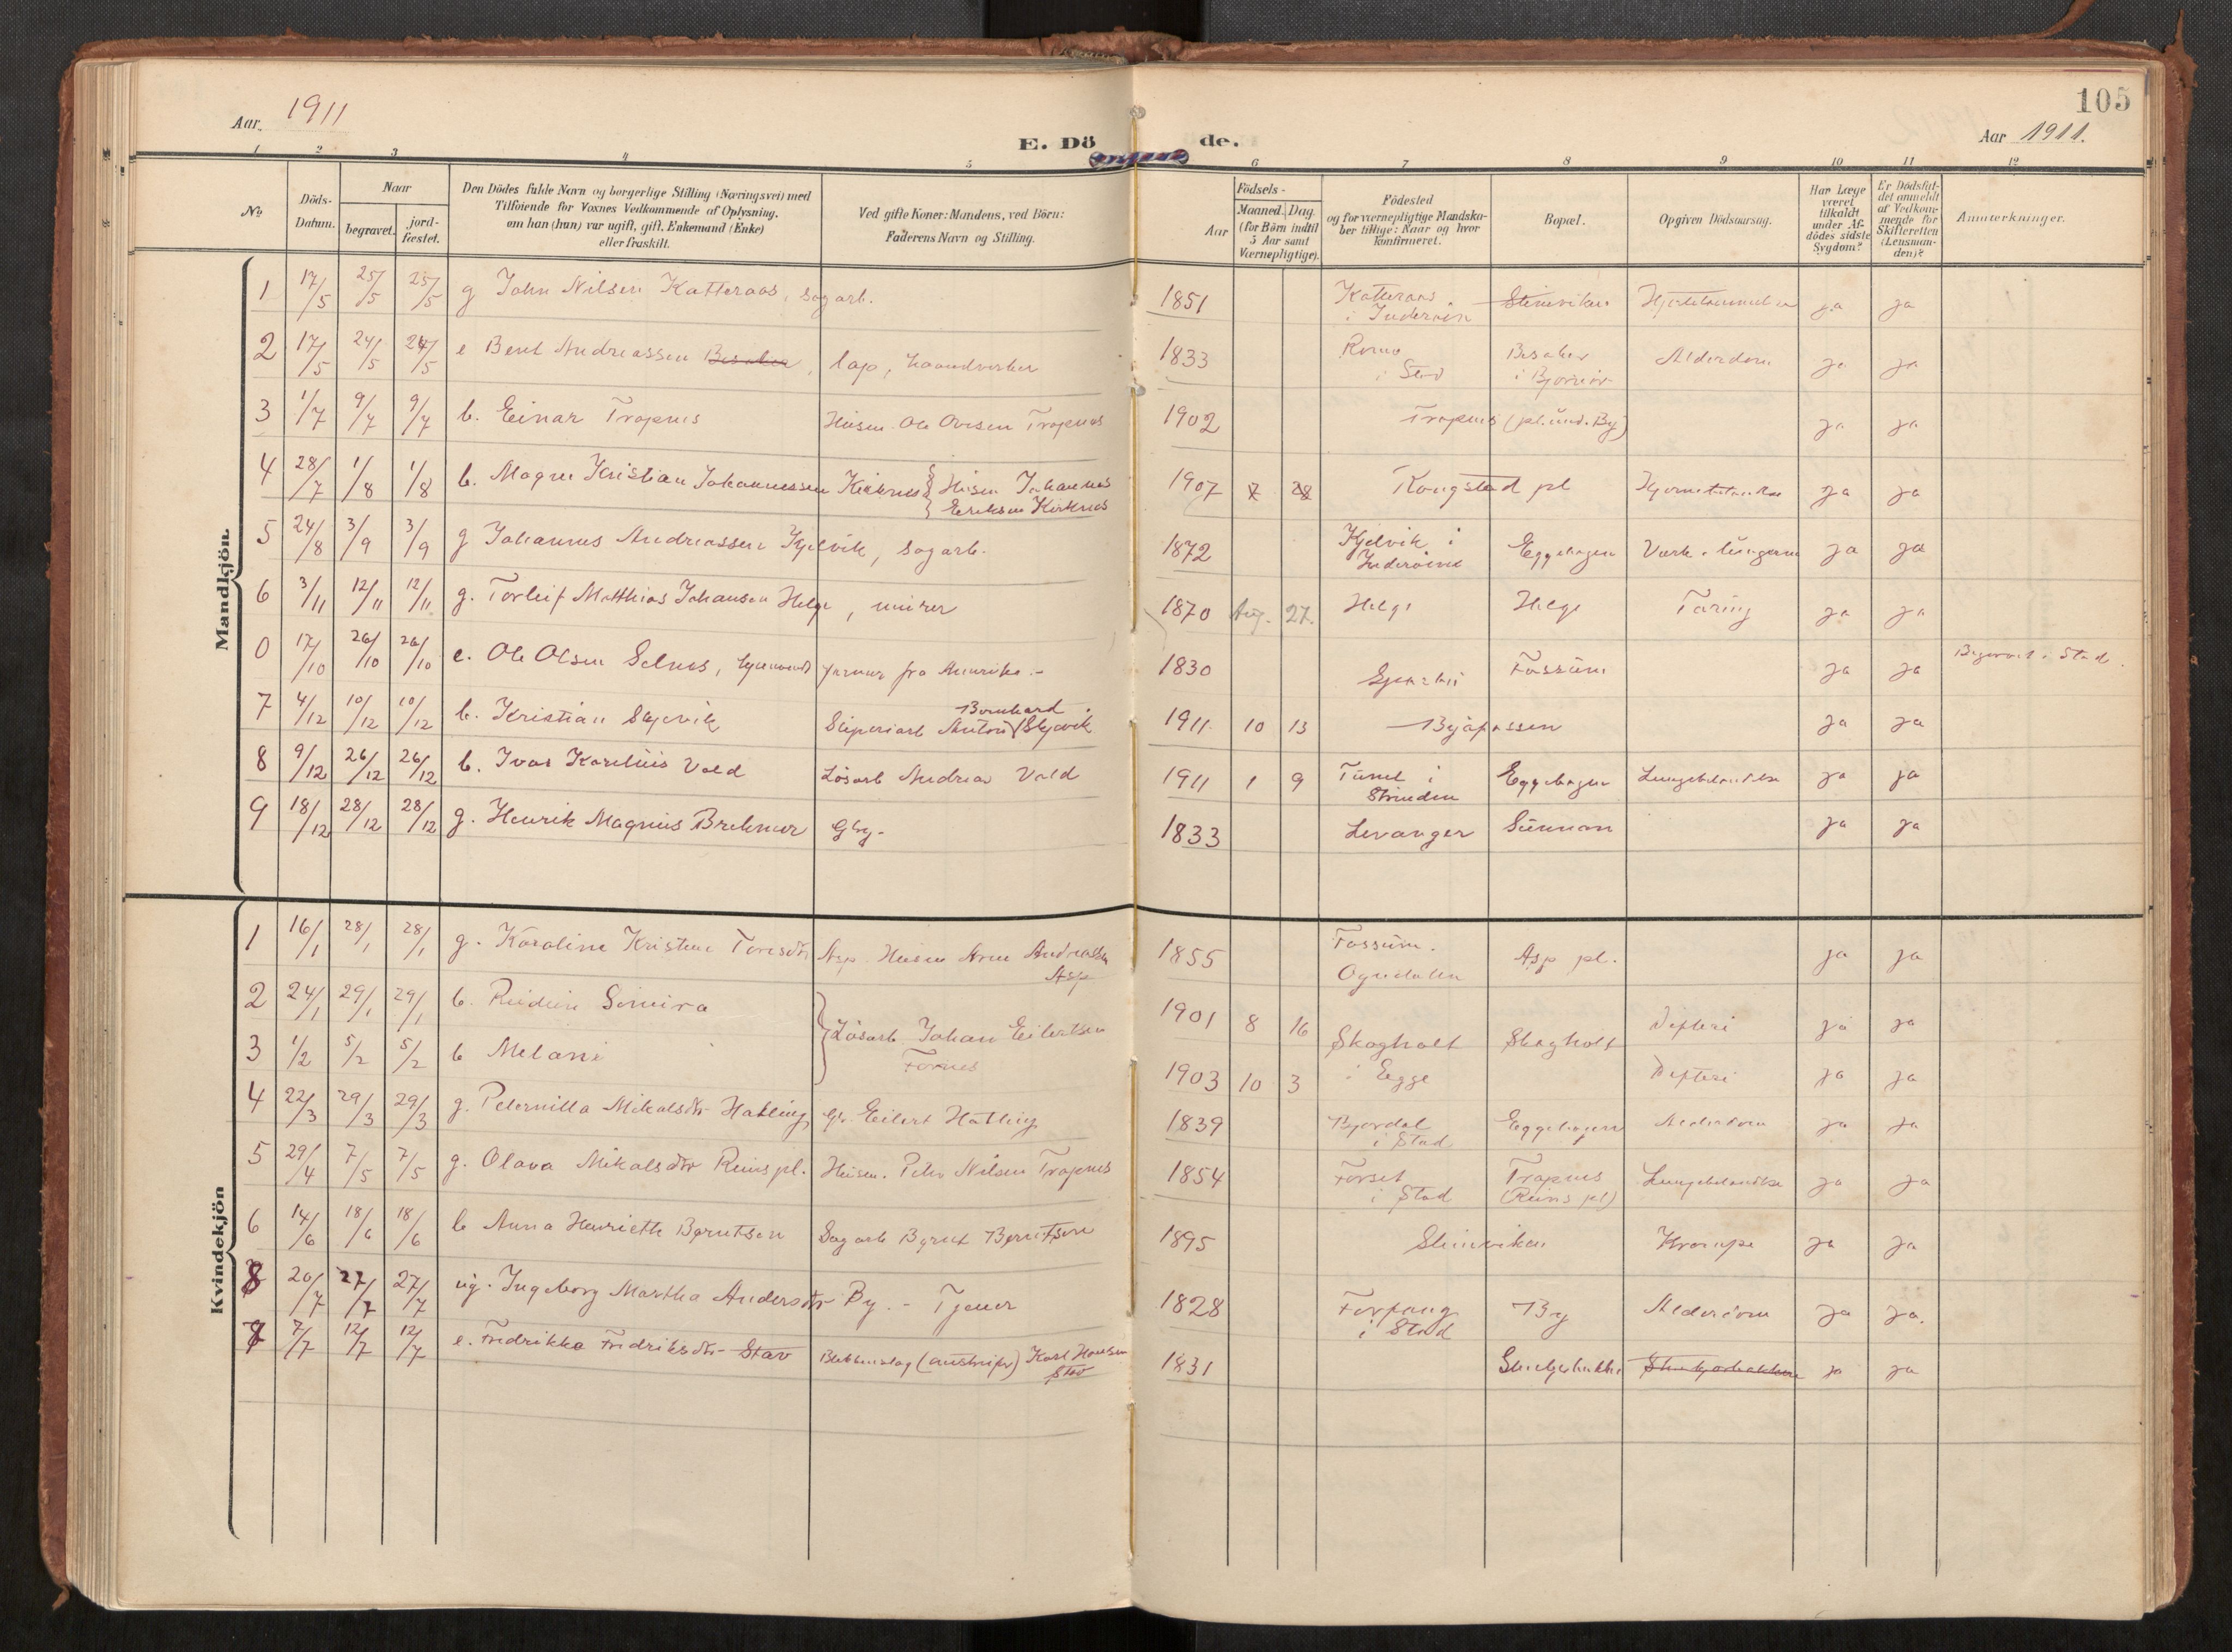 Aar 1911
E. Döde.
105
Aar 1911.
1 2 3 4 5 6 7 8 9 10 11 12
No
Döds-Datum.
Naar
begravet.
jord-fæstet.
Den Dödes fulde Navn og borgerlige Stilling (Næringsvei) med
Tilföiende for Voxnes Vedkommende af Oplysning,
om han (hun) var ugift, gift, Enkemand (Enke)
eller fraskilt.
Ved gifte Koner: Mandens, ved Börn:
Faderens Navn og Stilling.
Födsels-
Aar
Maaned. Dag.
(for Börn indtil
5 Aar samt
Værnepligtige).
Födested
og for værnepligtige Mandska-
ber tillige: Naar og hvor
konfirmeret.
Bopæl.
Opgiven Dödsaarsag.
Har Læge
været
tilkaldt
under Af-
dödes sidste
Sygdom?
Er Dödsfal-
det anmeldt
af Vedkom-
mende for
Skifteretten
(Lensman-
den)?
Anmærkninger.
Mandkjön.
1 17/5 25/5 25/5 g John Nilsen Katteraas, sagarb. 1851 Katteraas i Inderøen Steinviken ja ja
2 17/5 24/5 24/5 e Bent Andreassen Besaker, lap, haandverker 1833 i Stod Besaker i Bjørnør Alderdom ja ja
3 1/7 9/7 9/7 b. Einar Trapnes Husm. Ole Ovesen Trapnes 1902 Trapnes (pl. und. By) ja ja
4 28/7 1/8 1/8 b. Magne Kristian Johannessen Kirknes Husm Johannes
Eriksen Kirknes 1907 7 28 Kongstad pl ja ja
5 24/8 3/9 3/9 g Johannes Andreassen Kjelvik, sagarb. 1872 Kjelvik i Inderøen Eggehagen Værk i lungerne ja ja
6 3/11 12/11 12/11 g. Torleif Matthias Johansen Helge, murer 1870 Aug. 27. Helge Helge Tæring ja ja
0 17/10 26/10 26/10 e. Ole Olsen Selnes, farmer fra Amerika.- 1830 Fossum ja ja Begravet i Stod.
7 4/12 10/12 10/12 b. Kristian Skjevik Sliperiarb Anton Bernhard Skjevik 1911 10 13 Byafossen ja ja
8 9/12 26/12 26/12 b. Ivar Karelius Vold Løsarb Andreas Vold 1911 1 9 i Strinden Eggehagen Lungebetændelse ja ja
9 18/12 28/12 28/12 g. Henrik Magnus Brekmer Gbr. 1833 Levanger Sunnan ja ja
Kvindekjön
1 16/1 28/1 28/1 g. Karoline Kristine Toresdtr Asp Husm Arne Andreassen
Asp 1855 Fossum.
Ogndalen Asp pl. ja ja
2 24/1 29/1 29/1 b. 1901 8 16 Difteri ja ja
3 1/2 5/2 5/2 b Melani Løsarb Johan Eilertsen
Fornes 1903 10 3 Skogholt
i Egge Skogholt Difteri ja ja
4 22/3 29/3 29/3 g. Peternilla Mikalsdtr Hatling, Gbr. Eilert Hatling 1839 Bjordal
i Stod Eggehagen Alderdom ja ja
5 29/4 7/5 7/5 g. Olava Mikalsdtr Reins pl. Husm. Peter Nilsen Trapnes 1854 Forset
i Stod Trapnes
(Reins pl) Lungebetændelse ja ja
6 14/6 18/6 18/6 b Anna Henriette Berntsen Sagarb Bernt Berntsen 1895 Steinviken Krampe ja ja
8 20/7 27/7 27/7 ug. Ingeborg Martha Andersdtr By. - Tjener 1828 Forfang
i Stod By Alderdom ja ja.
7 7/7 12/7 12/7 e. Fredrikke Fredriksdtr Stav Karl Hansen
Stav 1831 ja ja